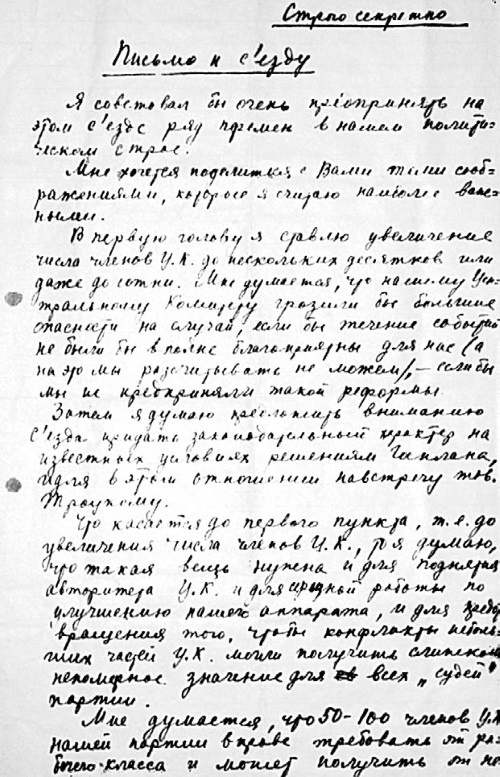 Строго секретно
Письмо к с'езду
Я советовал бы очень предпринять на
этом с'езде ряд перемен в нашем полити-
ческом строе.
Мне хочется поделиться с Вами теми сооб-
ражениями, которые я считаю наиболее важ-
ными.
В первую голову я ставлю увеличение
числа членов Ц.К. до нескольких десятков или
даже до сотни. Мне думается, что нашему Цен-
тральному Комитету грозили бы большие
опасности на случай, если бы течение событий
не были бы вполне благоприятны для нас (а
на это мы рассчитывать не можем), – если бы
мы не предприняли такой реформы.
Затем я думаю предложить вниманию
с'езда придать законодательный характер на
известных условиях решениям Госплана,
идя в этом отношении навстречу тов.
Троцкому.
Что касается до первого пункта, т.е. до
увеличения числа членов Ц.К., то я думаю,
что такая вещь нужна и для поднятия
авторитета Ц.К. и для серьезной работы по
улучшению нашего аппарата, и для предот-
вращения того, чтобы конфликты неболь-
ших частей Ц.К. могли получить слишком
непомерное значение для всех „судеб"
партии.
Мне думается, что 50–100 членов Ц.К.
наша партия вправе требовать от ра-
бочего класса и может получить от не